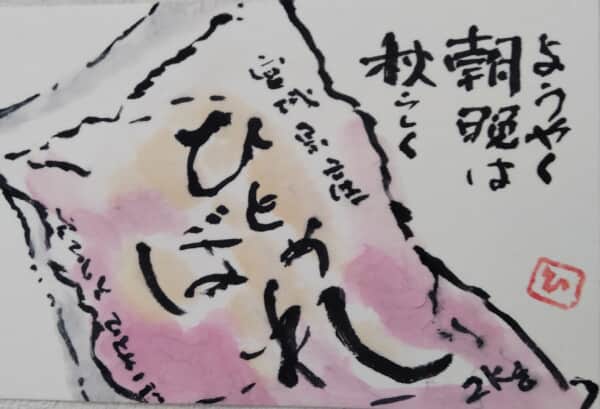 ようやく
朝晩は
秋らしく
宮城県産
ひとめ
ぼれ
2Kg
ひ